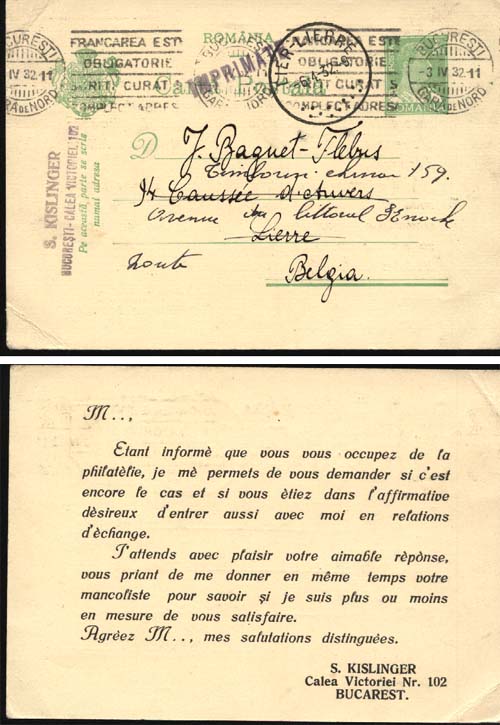 ROMÂNIA
BUCUREȘTI
3 IV 32.11
GARA DE NORD
FRANCAREA ESTE
OBLIGATORIE
SCRIȚI CURAT ȘI
COMPLECT ADRESA
IMPRIMATE
LIER-LIERRE
Carta Postala
FRANCAREA ESTE
OBLIGATORIE
SCRIȚI CURAT ȘI
COMPLECT ADRESA
BUCUREȘTI
-3 IV 32.11
GARA DE NORD
ROMANIA
S. KISLINGER
BUCUREȘTI-CALEA VICTORIEI, 102
Pe această parte se scrie
numai adresa
D J. Baquet-Flebus
159.
94 Caussée d'Anvers
Avenue du littoral
Lierre
Route
Belgia.
M..,
Etant informè que vous vous occupez de la
philatèlie, je mè permets de vous demander si c'est
encore le cas et si vous ètiez dans l'affirmative
dèsireux d'entrer aussi avec moi en relations
d'èchange.
J'attends avec plaisir votre aimable rèpònse,
vous priant de me donner en même temps votre
mancoliste pour savoir și je suis plus ou moins
en mesure de vous satisfaire.
Agrèez M.., mes salutations distinguées.
S. KISLINGER
Calea Victoriei Nr. 102
BUCAREST.